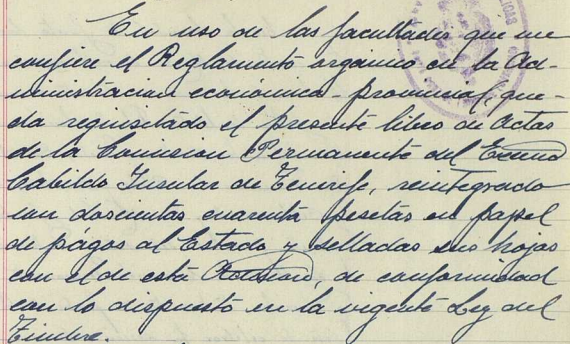 En uso de las facultades que me
confiere el Reglamento orgánico en la Ad-
ministracion económica-provincial, que-
da requisitado el presente libro de Actas
de la Comision Permanente del Excmo
Cabildo Insular de Tenerife, reintegrado
con doscientas cuarenta pesetas en papel
de págos al Estado y selladas sus hojas
con el de está, de conformidad
con lo dispuesto en la vigente Ley del
Timbre.